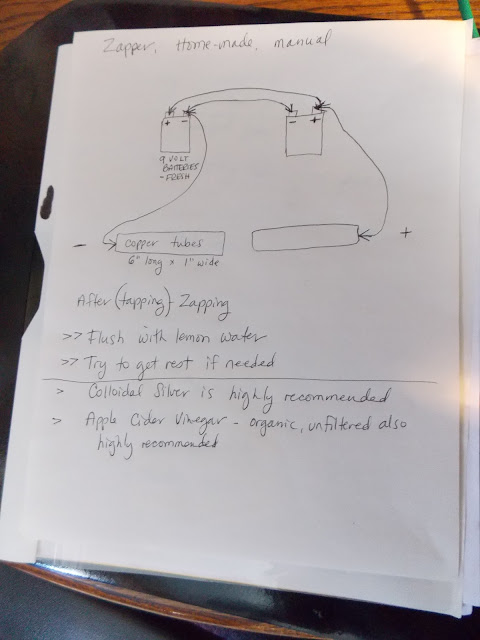 Zapper, Home-made, manual
+ -
- +
9 VOLT
BATTERIES
- FRESH
- copper tubes +
6" long x 1" wide
After (tapping) - Zapping
>> Flush with lemon water
>> Try to get rest if needed
> Colloidal Silver is highly recommended
> Apple Cider Vinegar - organic, unfiltered also
highly recommended